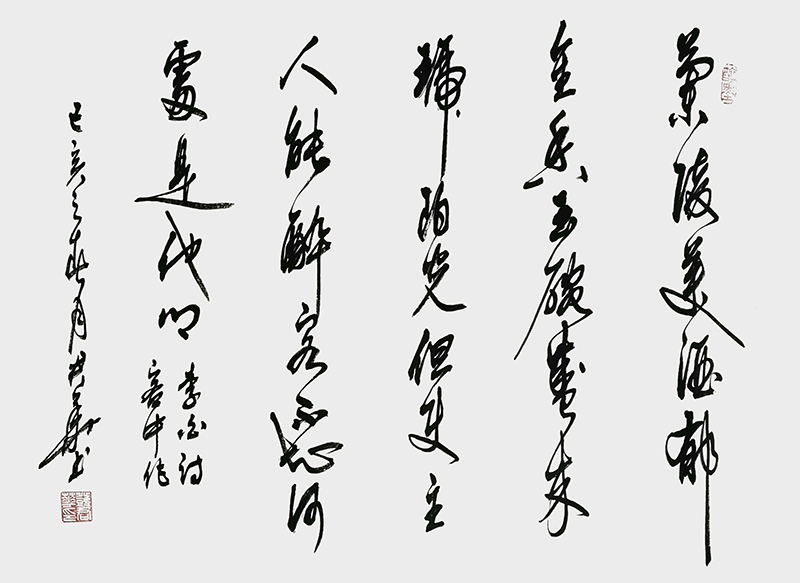 蘭陵美酒郁
金香玉碗盛来
琥珀光但使主
人能醉客不知何
處是他鄉
李白詩
客中作
己亥之春月書